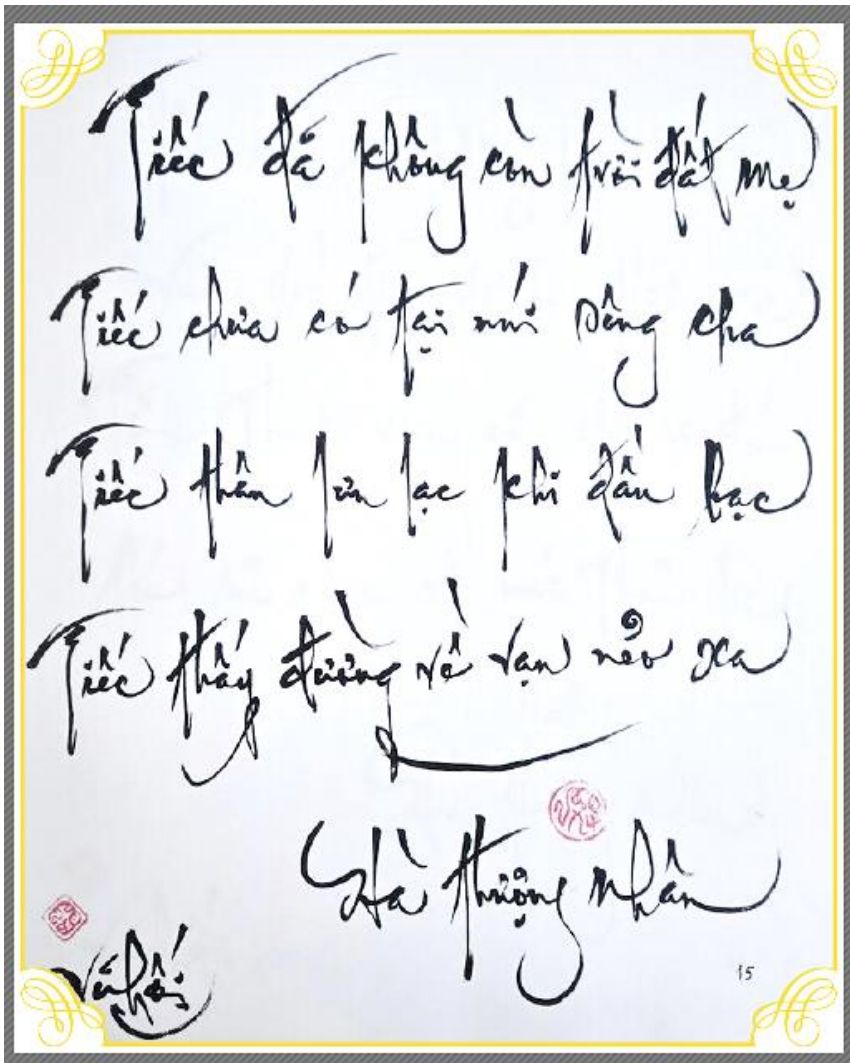 Tiếc đã không còn trời đất mẹ
Tiếc chưa có tại núi sông cha
Tiếc thân lưu lạc khi đầu bạc
Tiếc thấy đường về vạn nẻo xa
Hà Thượng Nhân
Vũ Hối
15